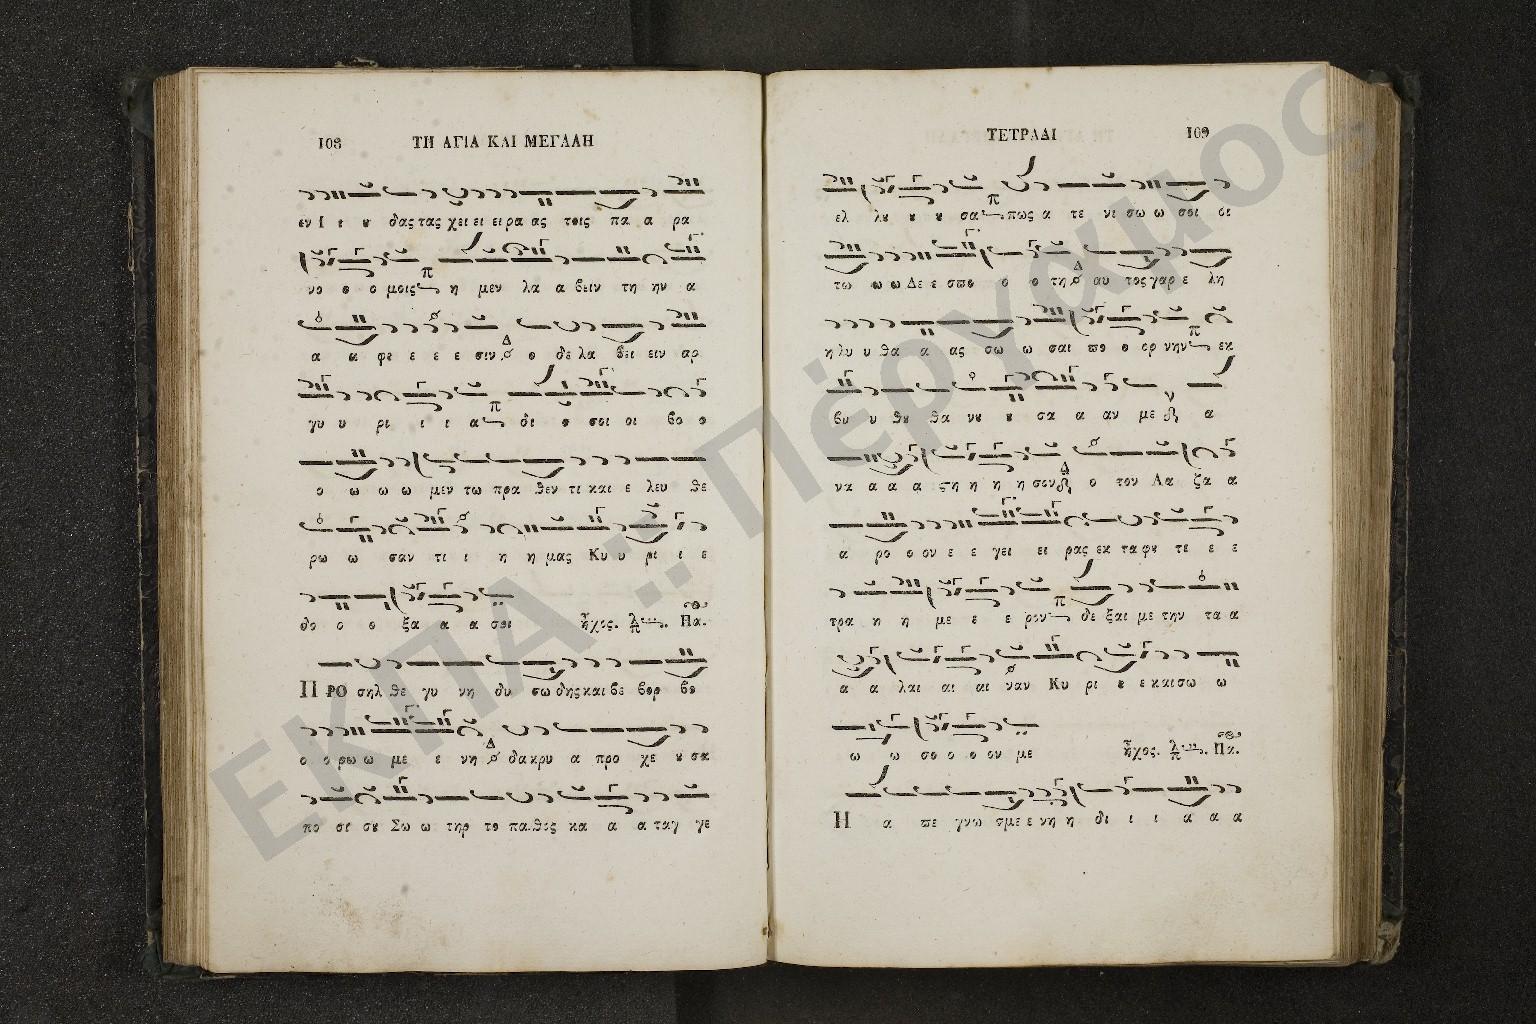 108 ΤΗ ΑΓΙΑ ΚΑΙ ΜΕΓΑΛΗ
εν Ι ι ȣ δας τας χει ει ει ρα ας τοις πα α ρα
νο ο ο μοις η μεν λα α βειν τη ην α
α α φε ε ε ε σιν ο δε λα βει ειν αρ
γυ υ ρι ι ι α δι ο σοι οι βο ο
ο ω ω ω μεν τω πρα θεν τι και ε λευ θε
ρω ω σαν τι ι η η μας Κυ υ ρι ι ε
δο ο ο ξα α α α σοι ἦχος. λ π Πα.
Π ΡΟ σηλ θε γυ νη δυ σω δης και βε βορ βο
ο ο ρω ω με ε νη δα κρυ α προ χε ȣ σα
πο σι σȣ Σω ω τηρ το πα θος κα α α ταγ γε
ΤΕΤΡΑΔΙ 109
ελ λȣ ȣ ȣ σα πως α τε νι σω ω σοι οι
τω ω ω Δε ε σπο ο ο τη αυ τος γαρ ε λη
η λυ υ θα α ας σω ω σαι πο ο ορ νην εκ
βυ υ θȣ θα νȣ ȣ σα α αν με α
να α α α ςη η η η σον ο τον Λα ζα α
α ρο ο ον ε ε γει ει ρας εκ τα φȣ τε ε ε
τρα η η με ε ε ρον δε ξαι με την τα α
α α λαι αι αι ναν Κυ ρι ε ε και σω ω
ω ω σο ο ο ον με ἦχος. λ π Πα.
Η α πε γνω σμε ε νη η δι ι ι α α α
ΕΚΠΑ :: Πέργαμος